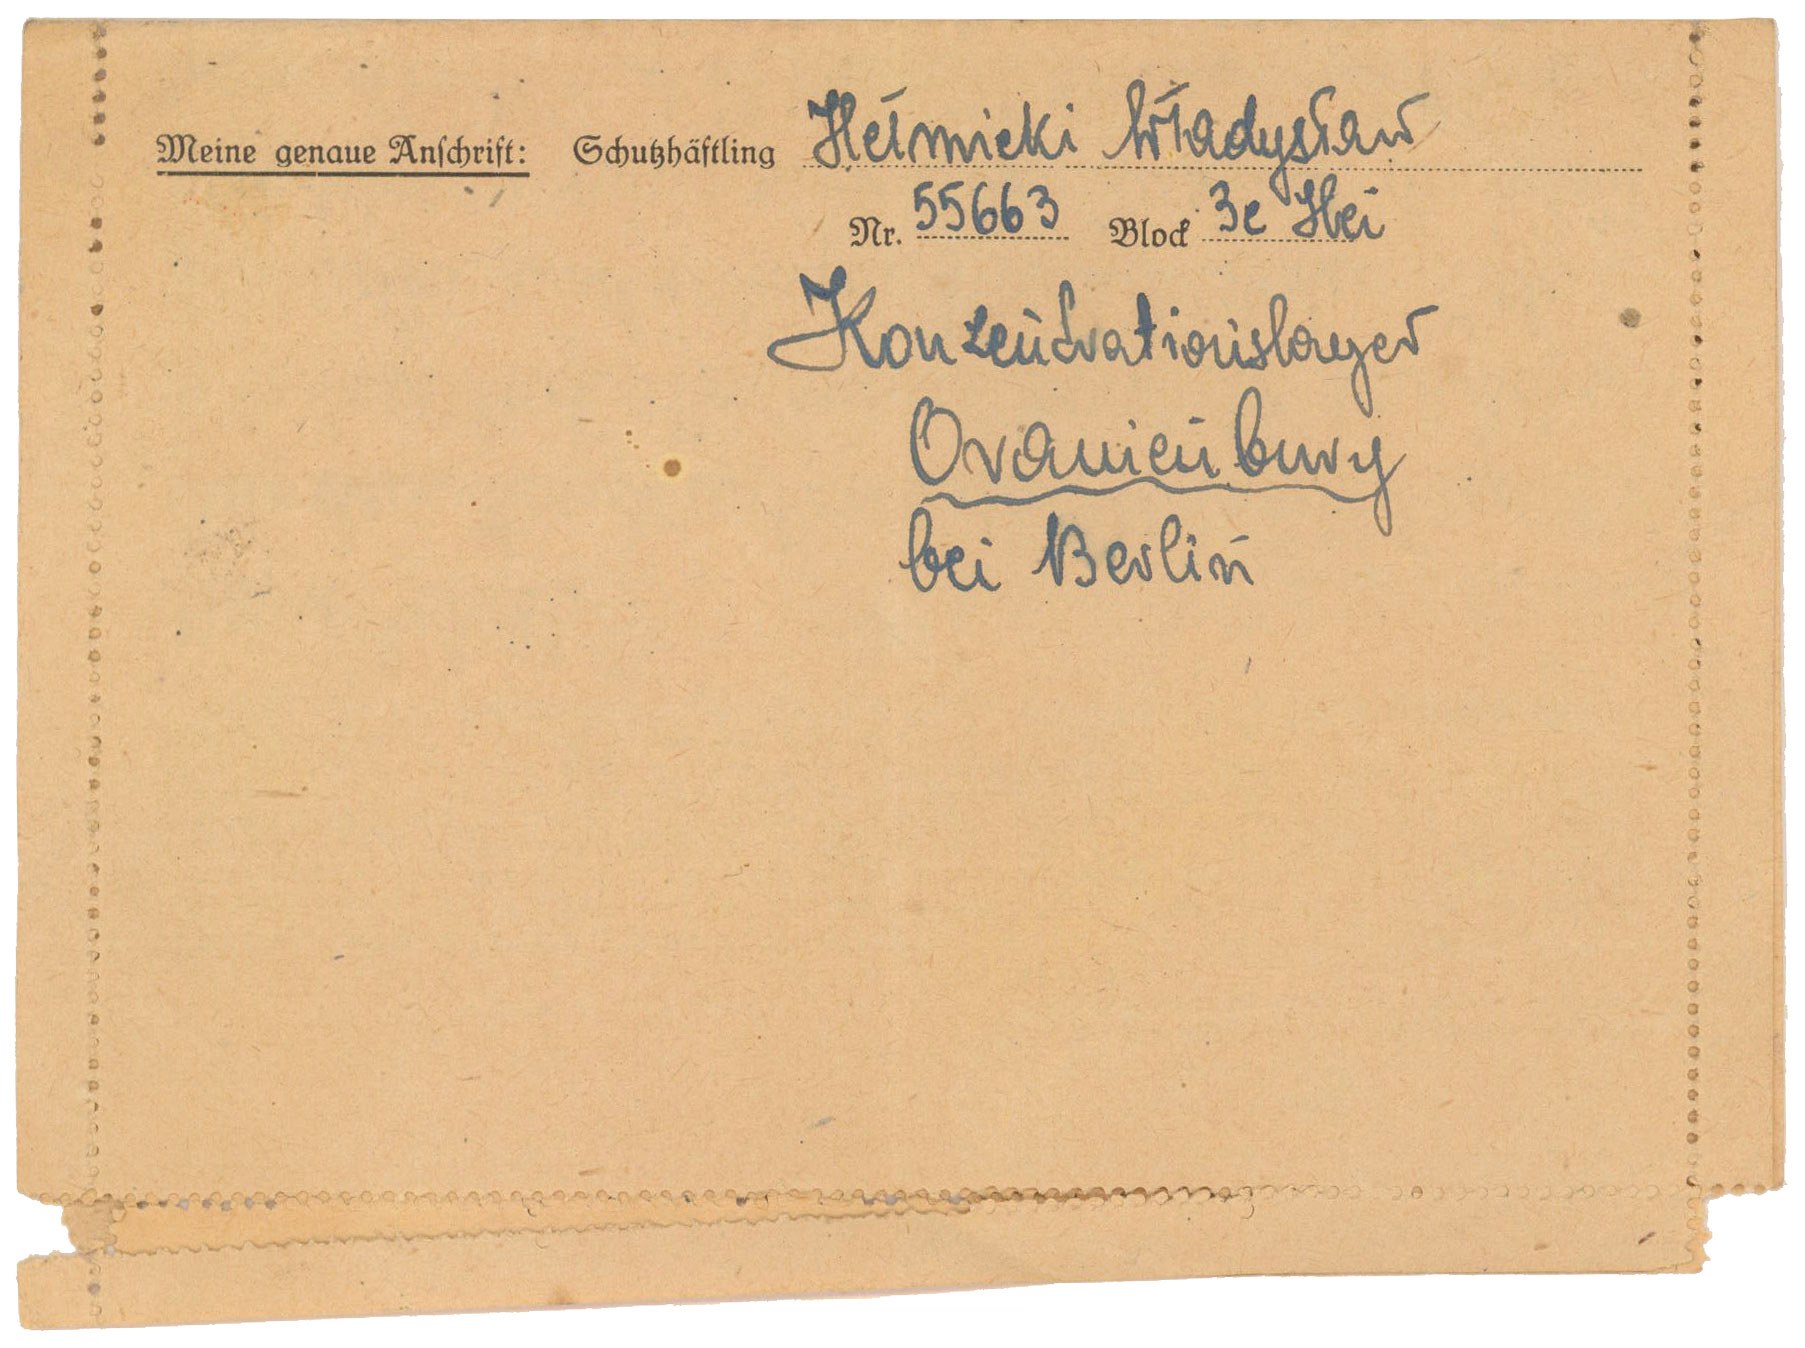 Meine genaue Anschrift: Schutzhäftling Hełmicki Władysław
Nr. 55663 Block 3e Hei
Konzentrationslager
Oranienburg
bei Berlin